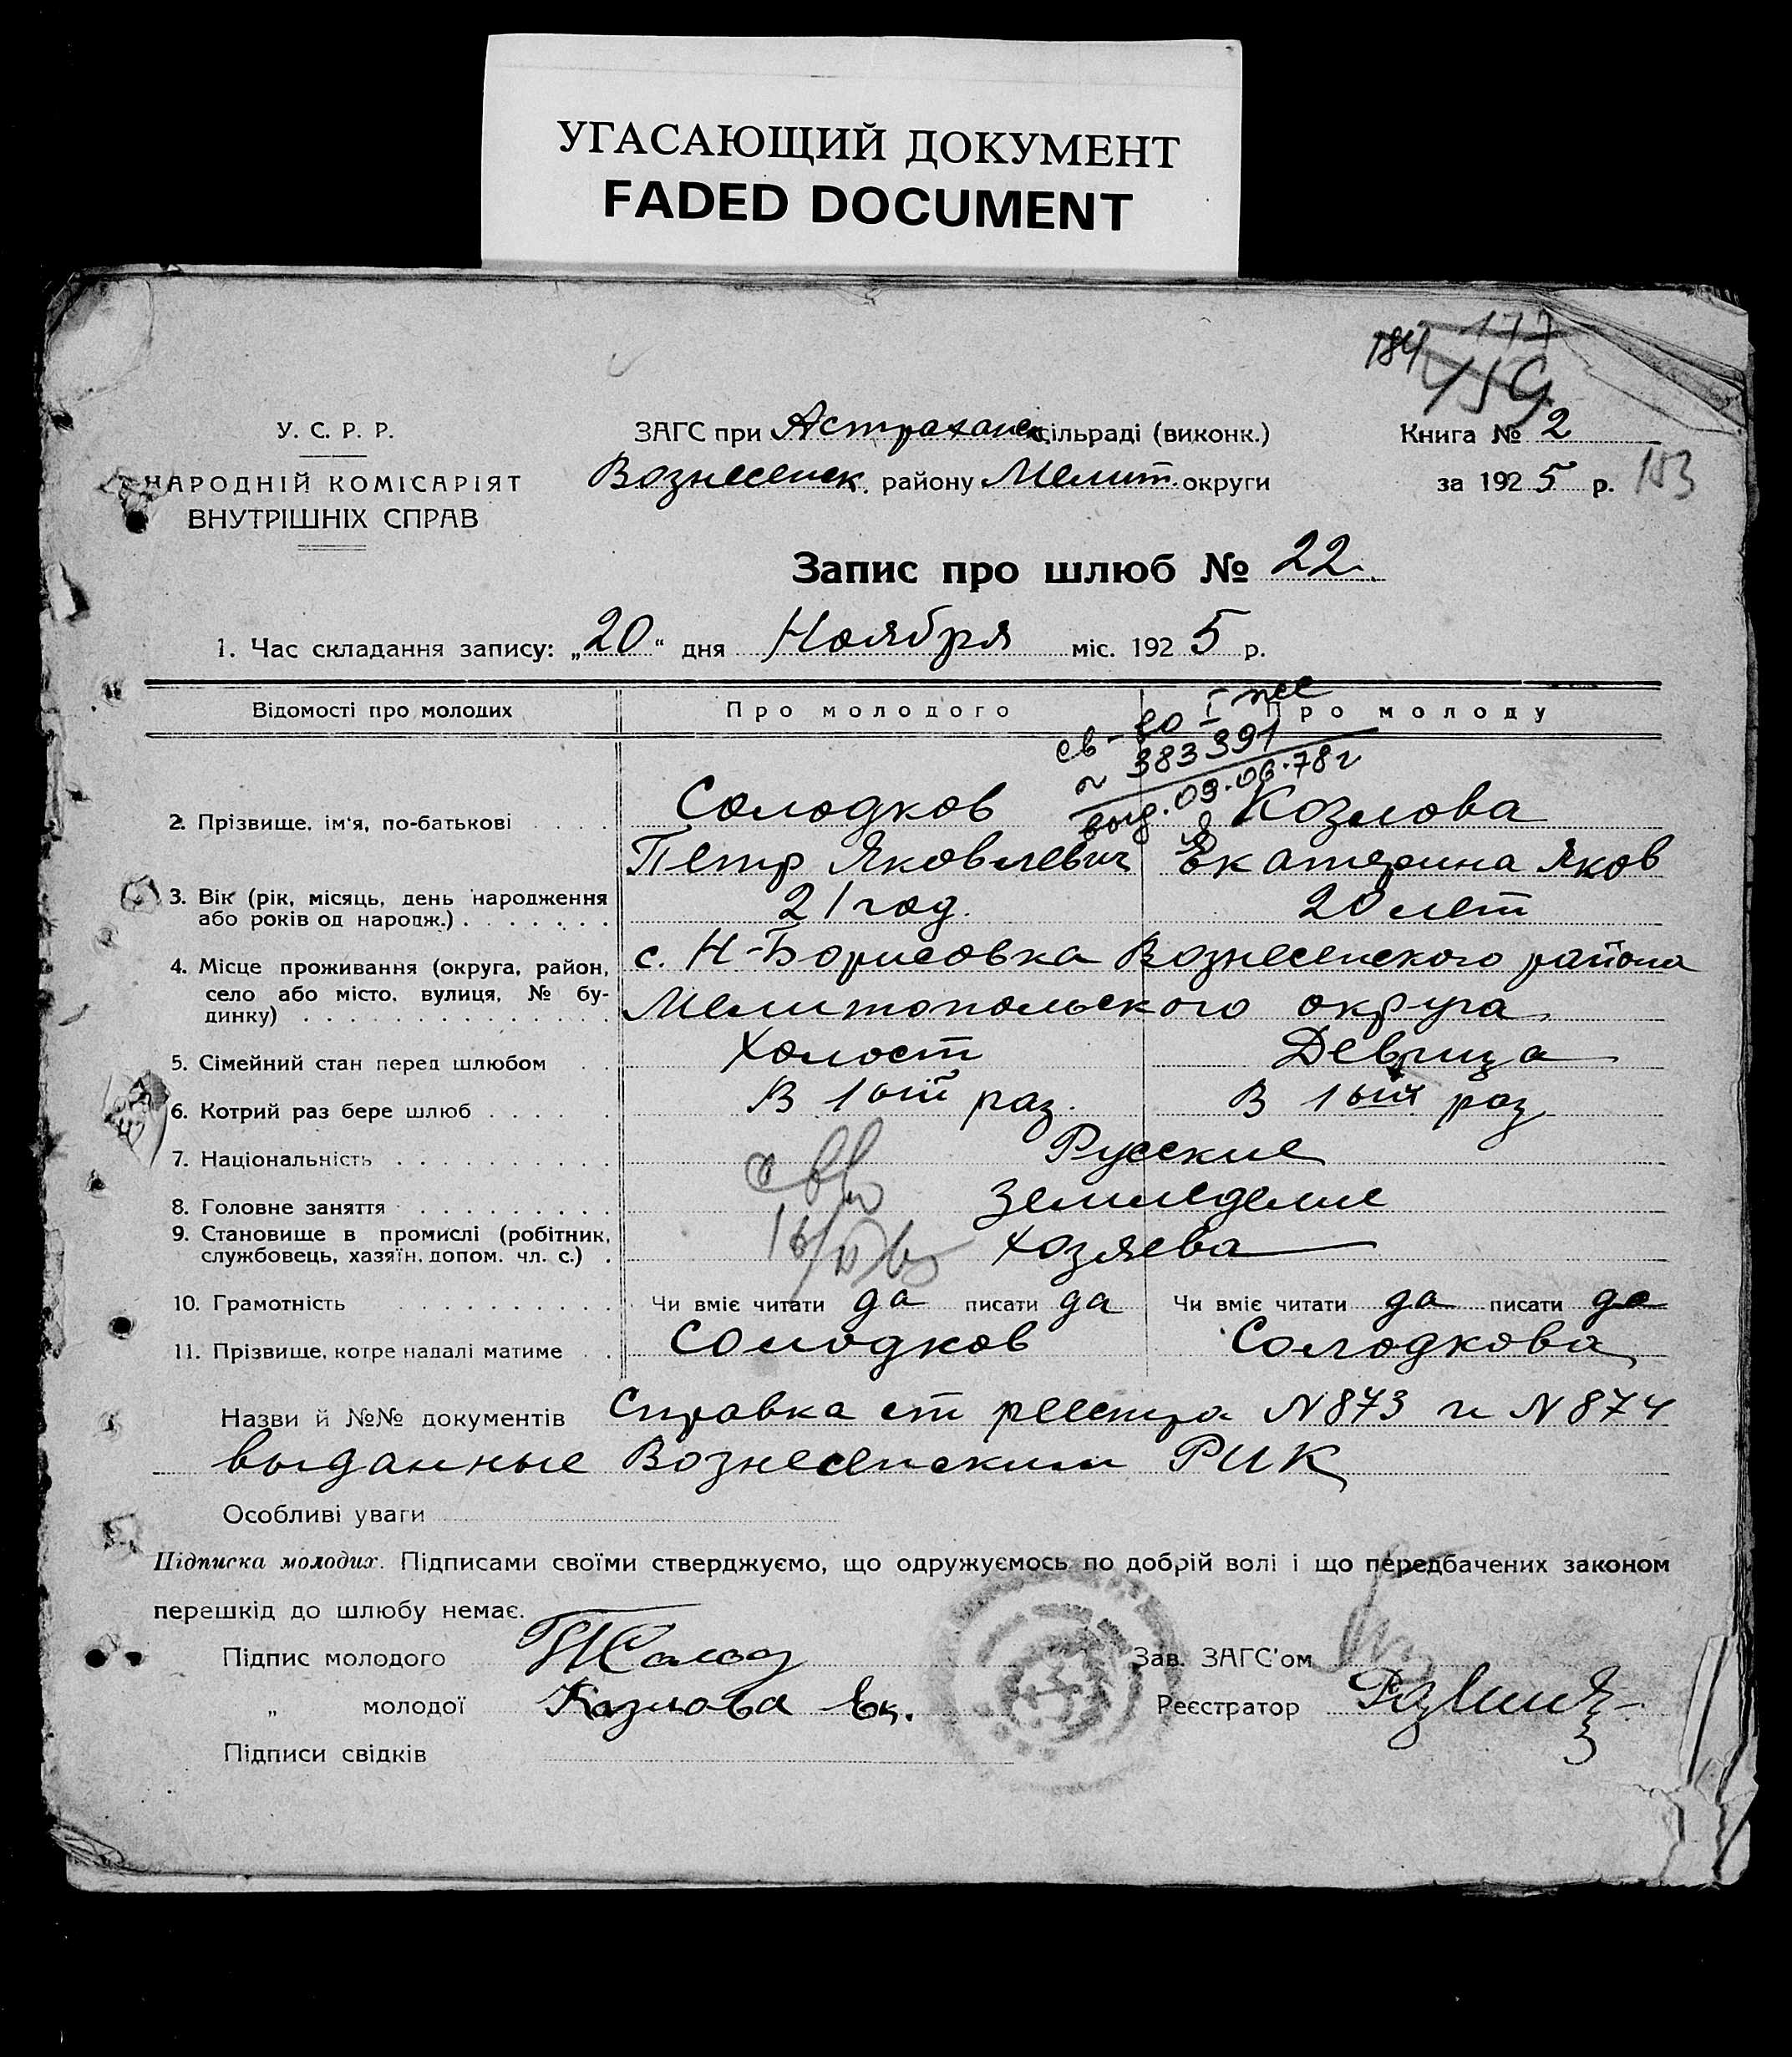 УГАСАЮЩИЙ ДОКУМЕНТ
FADED DOCUMENT
184 177
159
У. С. Р. Р.
НАРОДНІЙ КОМІСАРІЯТ
ВНУТРІШНІХ СПРАВ
ЗАГС при Астраханск. сільраді (виконк.)
Вознесенск. району Мелит. округи
Книга № 2
за 1925 р. 153
Запис про шлюб № 22.
1. Час складання запису: „20“ дня Ноября міс. 1925 р.
Відомості про молодих Про молодого Про молоду
св-во I
383391
выд. 09.06.78 г
2. Прізвище, ім'я, по-батькові Солодков Козлова
Петр Яковлевич Екатерина Яков
3. Вік (рік, місяць, день народження
або років од народж.) 21 год. 20 лет
4. Місце проживання (округа, район, с. Н-Борисовка Вознесенского района
село або місто, вулиця, № бу-
динку) Мелитопольского округа
5. Сімейний стан перед шлюбом Холост Девица
6. Котрий раз бере шлюб В 1ый раз. В 1ый раз
7. Національність Русские
8. Головне заняття Земледелие
9. Становище в промислі (робітник,
службовець, хазяїн, допом. чл. с.) Хозяева
10. Грамотність Чи вміє читати да писати да Чи вміє читати да писати да
11. Прізвище, котре надалі матиме Солодков Солодкова
Назви й №№ документів Справка ст реестра N 873 и N 874
выданные Вознесенским РИК
Особливі уваги
Підписка молодих. Підписами своїми стверджуємо, що одружуємось по добрій волі і що передбачених законом
перешкід до шлюбу немає.
Підпис молодого Зав. ЗАГС'ом
„ молодої Козлова Ек. Реєстратор
Підписи свідків